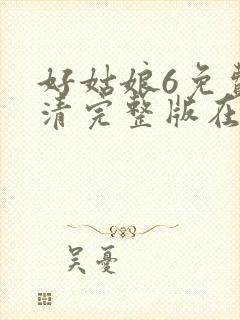 好姑娘6免费
清完整版在
吴忧